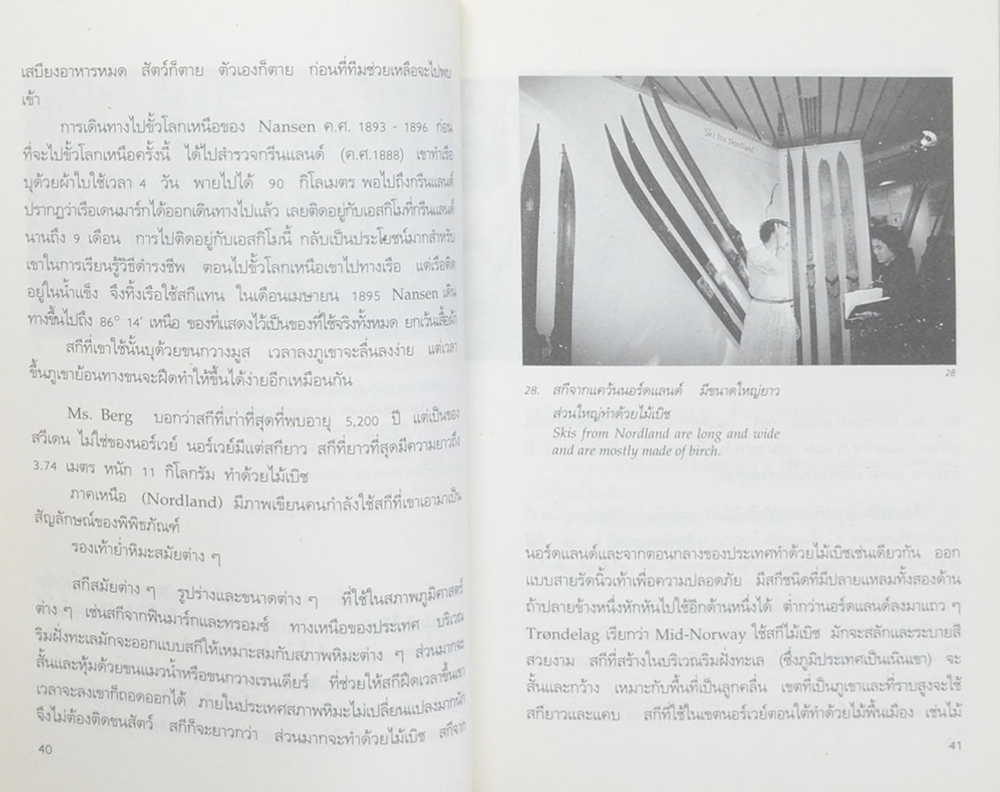 เสบียงอาหารหมด สัตว์ก็ตาย ตัวเองก็ตาย ก่อนที่ทีมช่วยเหลือจะไปพบ
เข้า
การเดินทางไปขั้วโลกเหนือของ Nansen ค.ศ. 1893 - 1896 ก่อน
ที่จะไปขั้วโลกเหนือครั้งนี้ ได้ไปสำรวจกรีนแลนด์ (ค.ศ.1888) เขาทำเรือ
บุด้วยผ้าใบใช้เวลา 4 วัน พายไปได้ 90 กิโลเมตร พอไปถึงกรีนแลนด์
ปรากฏว่าเรือเดนมาร์กได้ออกเดินทางไปแล้ว เลยติดอยู่กับเอสกิโมที่กรีนแลนด์
นานถึง 9 เดือน การไปติดอยู่กับเอสกิโมนี้ กลับเป็นประโยชน์มากสำหรับ
เขาในการเรียนรู้วิธีดำรงชีพ ตอนไปขั้วโลกเหนือเขาไปทางเรือ แต่เรือติด
อยู่ในน้ำแข็ง จึงทิ้งเรือใช้สกีแทน ในเดือนเมษายน 1895 Nansen เดิน
ทางขึ้นไปถึง 86° 14' เหนือ ของที่แสดงไว้เป็นของที่ใช้จริงทั้งหมด ยกเว้นเสื้อผ้า
สกีที่เขาใช้นั้นบุด้วยขนกวางมูส เวลาลงภูเขาจะลื่นลงง่าย แต่เวลา
ขึ้นภูเขาย้อนทางขนจะฝืดทำให้ขึ้นได้ง่ายอีกเหมือนกัน
Ms. Berg บอกว่าสกีที่เก่าที่สุดที่พบอายุ 5,200 ปี แต่เป็นของ
สวีเดน ไม่ใช่ของนอร์เวย์ นอร์เวย์มีแต่สกียาว สกีที่ยาวที่สุดมีความยาวถึง
3.74 เมตร หนัก 11 กิโลกรัม ทำด้วยไม้เบิช
ภาคเหนือ (Nordland) มีภาพเขียนคนกำลังใช้สกีที่เขาเอามาเป็น
สัญลักษณ์ของพิพิธภัณฑ์
รองเท้าย่ำหิมะสมัยต่าง ๆ
สกีสมัยต่าง ๆ รูปร่างและขนาดต่าง ๆ ที่ใช้ในสภาพภูมิศาสตร์
ต่าง ๆ เช่นสกีจากฟินมาร์กและทรอมซ์ ทางเหนือของประเทศ บริเวณ
ริมฝั่งทะเลมักจะออกแบบสกีให้เหมาะสมกับสภาพหิมะต่าง ๆ ส่วนมากจะ
สั้นและหุ้มด้วยขนแมวน้ำหรือขนกวางเรนเดียร์ ที่ช่วยให้สกีฝืดเวลาขึ้นเขา
เวลาจะลงเขาก็ถอดออกได้ ภายในประเทศสภาพหิมะไม่เปลี่ยนแปลงมากนัก
จึงไม่ต้องติดขนสัตว์ สกีก็จะยาวกว่า ส่วนมากจะทำด้วยไม้เบิช สกีจาก
40
Ski fra Nordland
28
28. สกีจากแคว้นนอร์ดแลนด์ มีขนาดใหญ่ยาว
ส่วนใหญ่ทำด้วยไม้เบิช
Skis from Nordland are long and wide
and are mostly made of birch.
นอร์ดแลนด์และจากตอนกลางของประเทศทำด้วยไม้เบิชเช่นเดียวกัน ออก
แบบสายรัดนิ้วเท้าเพื่อความปลอดภัย มีสกีชนิดที่มีปลายแหลมทั้งสองด้าน
ถ้าปลายข้างหนึ่งหักหันไปใช้อีกด้านหนึ่งได้ ต่ำกว่านอร์ดแลนด์ลงมาแถว ๆ
Trøndelag เรียกว่า Mid-Norway ใช้สกีไม้เบิช มักจะสลักและระบายสี
สวยงาม สกีที่สร้างในบริเวณริมฝั่งทะเล (ซึ่งภูมิประเทศเป็นเนินเขา) จะ
สั้นและกว้าง เหมาะกับพื้นที่เป็นลูกคลื่น เขตที่เป็นภูเขาและที่ราบสูงจะใช้
สกียาวและแคบ สกีที่ใช้ในเขตนอร์เวย์ตอนใต้ทำด้วยไม้พื้นเมือง เช่นไม้
41